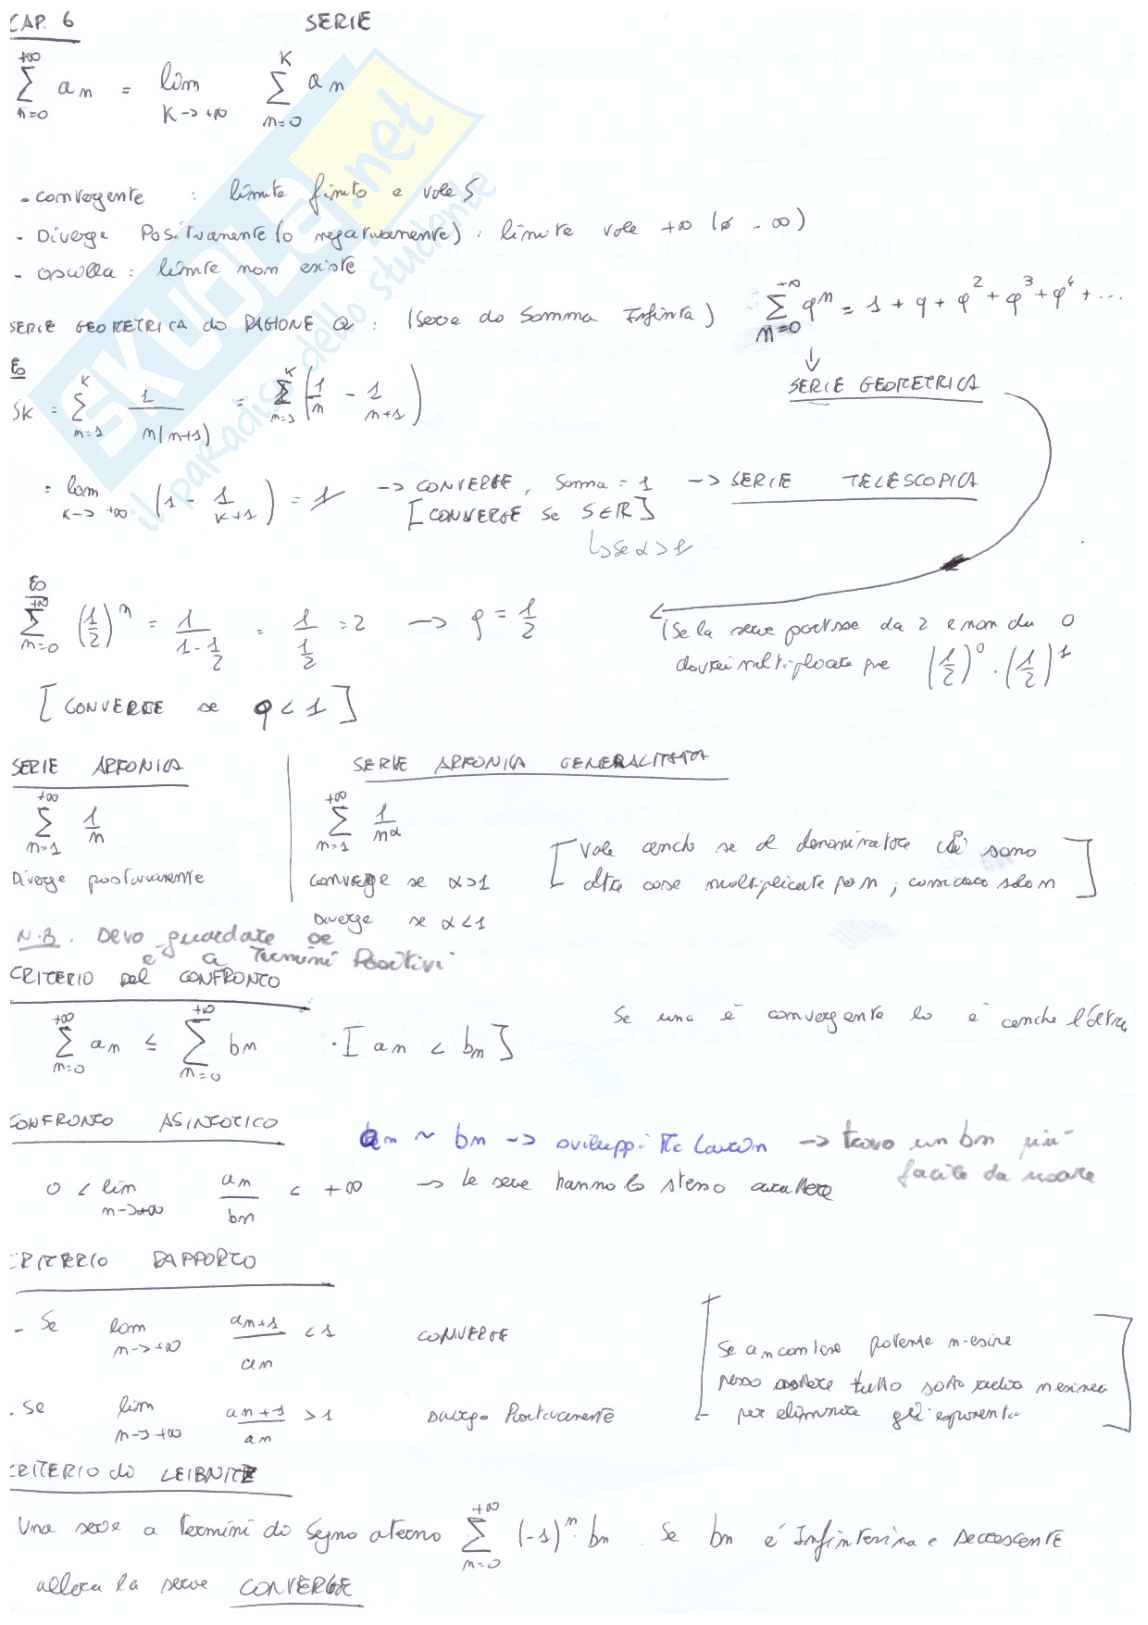 CAP. 6 SERIE
+∞ Σ n=0 an = lim K->+∞ K Σ n=0 an
- convergente : limite finito e vale S
- Diverge Positivamente (o negativamente) : limite vale +∞ (o -∞)
- oscilla : limite non esiste
SERIE GEOMETRICA di RAGIONE Q : (Serie di Somma Infinita) +∞ Σ n=0 q^n = 1 + q + q^2 + q^3 + q^4 + ...
↓
SERIE GEOMETRICA
Es
SK = K Σ n=1 1/n(n+1) = K Σ n=1 (1/n - 1/n+1)
= lim K->+∞ (1 - 1/K+1) = 1 -> CONVERGE, Somma = 1 -> SERIE TELESCOPICA
[CONVERGE se S∈R]
↳ se α>1
Es
+∞ Σ n=0 (1/2)^n = 1/1-1/2 = 1/1/2 = 2 -> q = 1/2
(Se la serie partisse da 2 e non da 0
dovrei moltiplicare per (1/2)^0 · (1/2)^1
[CONVERGE se q < 1]
SERIE ARMONICA
+∞ Σ n=1 1/n
Diverge positivamente
SERIE ARMONICA GENERALIZZATA
+∞ Σ n=1 1/n^α
converge se α>1
Diverge se α<1
[Vale anche se al denominatore ci sono
altre cose moltiplicate per n, comicaco solo n]
N.B. Devo guardare se
è a Termini Positivi
CRITERIO del CONFRONTO
+∞ Σ n=0 an ≤ +∞ Σ n=0 bn · [an < bn]
Se una è convergente lo è anche l'altra
CONFRONTO ASINTOTICO an ~ bn -> sviluppi Mc Laurin -> trovo un bn più
facile da usare
0 < lim n->+∞ an/bn < +∞ -> le serie hanno lo stesso carattere
CRITERIO RAPPORTO
- Se lim n->+∞ an+1/an < 1 CONVERGE
. Se lim n->+∞ an+1/an > 1 diverge Positivamente
[Se an contiene potenze n-esime
posso mettere tutto sotto radice n esima
per eliminare gli esponenti]
CRITERIO di LEIBNITZ
Una serie a termini di segno alterno +∞ Σ n=0 (-1)^n · bn Se bn è Infinitesima e decrescente
allora la serie CONVERGE
SKUOLA.net
il paradiso dello studente